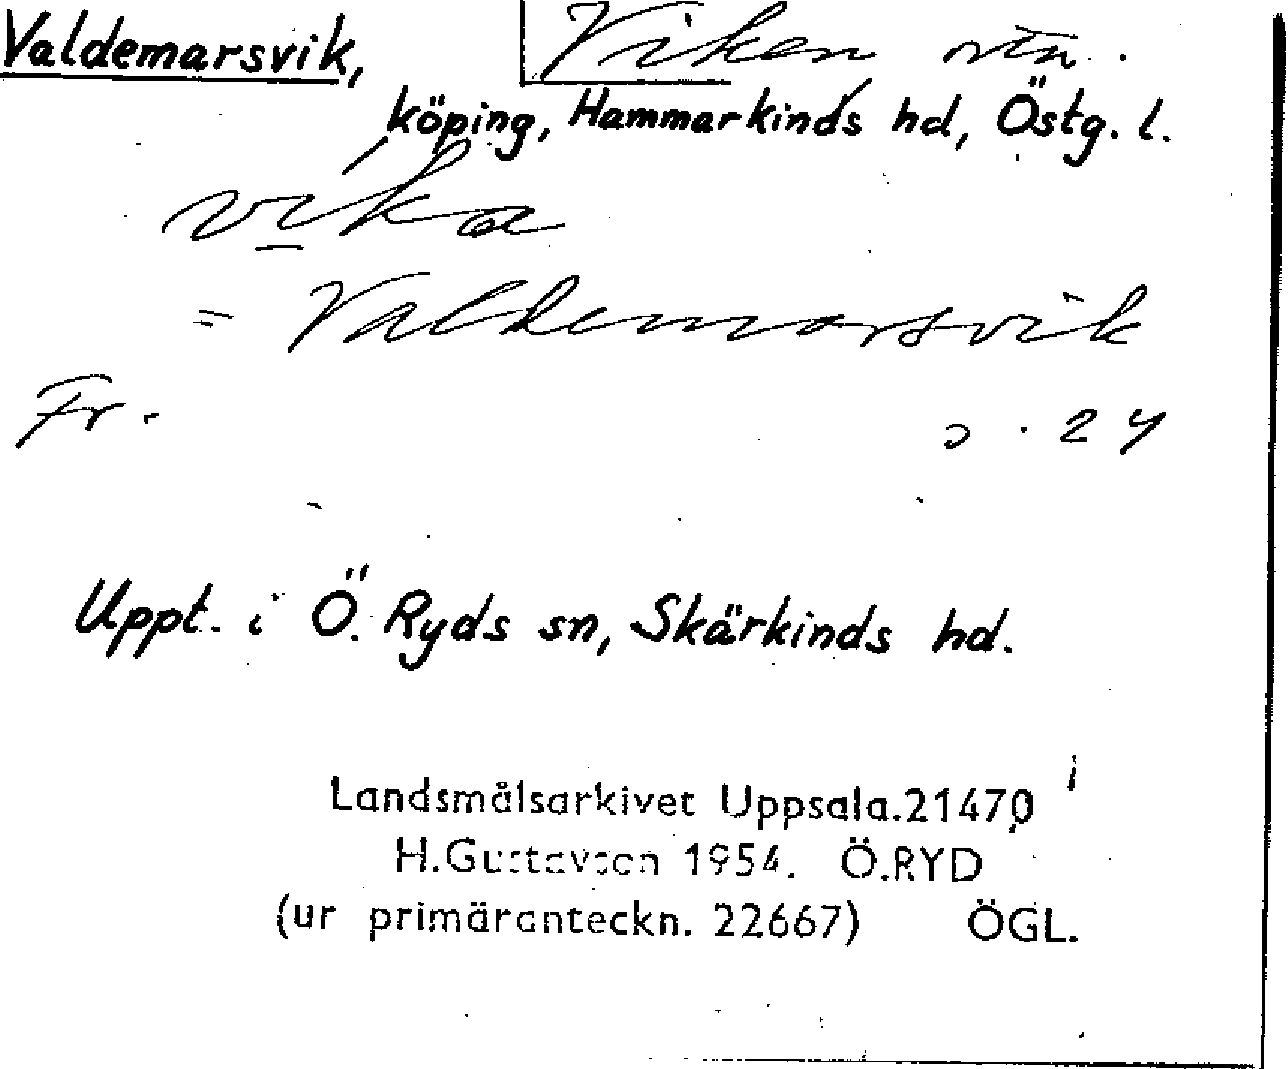 Valdemarsvik, Viken
köping, Hammarkinds hd, Östg. l.
vika
= Valdemarsvik
Fr. s. 24
Uppt. i Ö. Ryds sn, Skärkinds hd.
Landsmålsarkivet Uppsala.21470
H.Gustavson 1954. Ö.RYD
(ur primäranteckn. 22667) ÖGL.